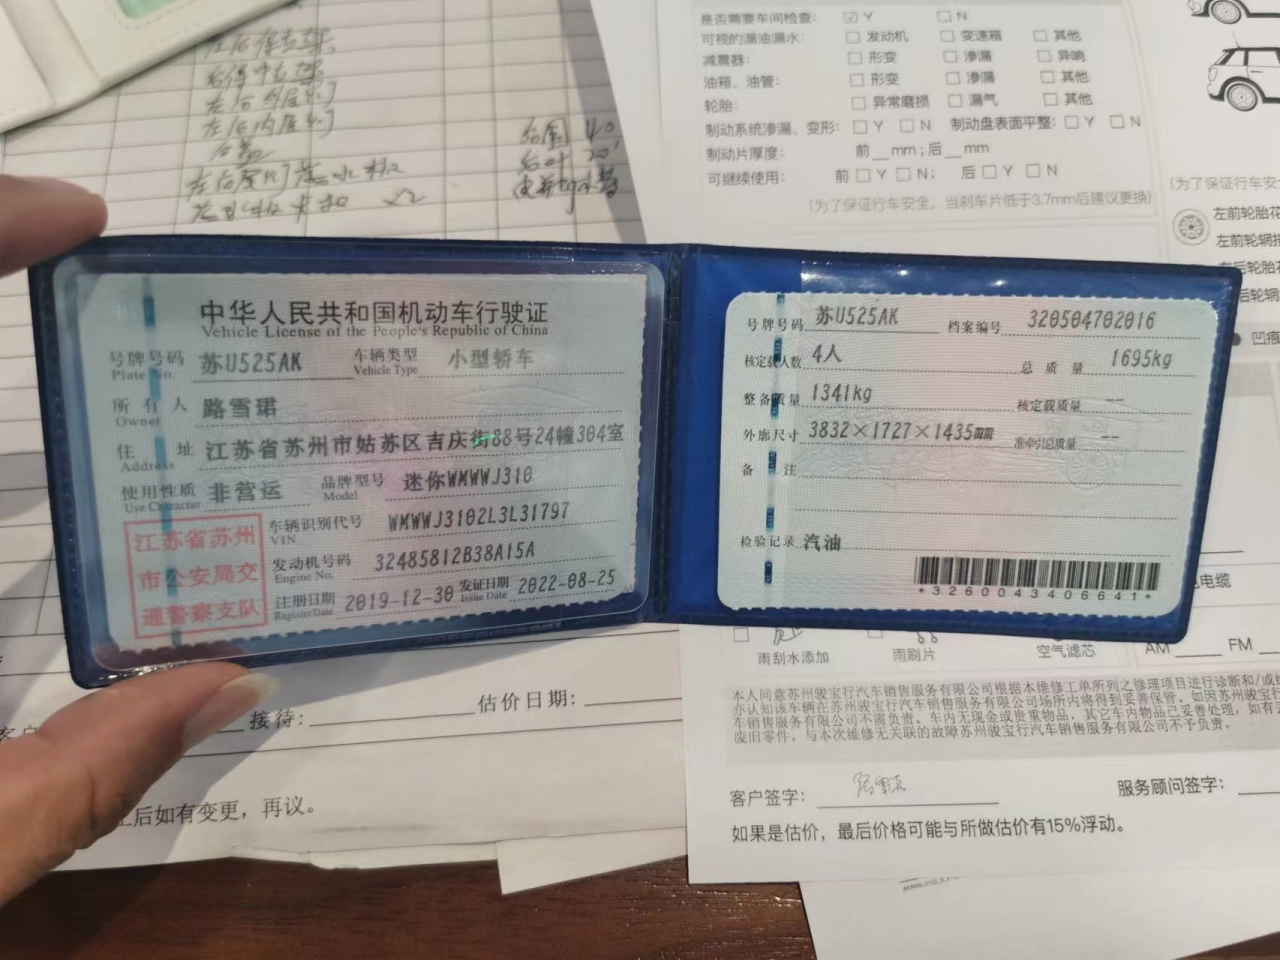 是否需要车间检查： Y N
可视的漏油漏水： 发动机 变速箱 其他
减震器： 形变 渗漏 异响
油箱、油管： 形变 渗漏 其他
轮胎： 异常磨损 漏气 其他
制动系统渗漏、变形： Y N 制动盘表面平整： Y N
制动片厚度： 前__mm；后__mm
可继续使用： 前 Y N； 后 Y N
（为了保证行车安全，当刹车片低于3.7mm后建议更换）
（为了保证行车安
左前轮胎花
左前轮辋
后轮胎花
后轮辋
凹痕
中华人民共和国机动车行驶证
Vehicle License of the People's Republic of China
号牌号码 苏U525AK 车辆类型 小型轿车
Plate No. Vehicle Type
所有人 路雪珺
Owner
住址 江苏省苏州市姑苏区吉庆街88号24幢304室
Address
使用性质 非营运 品牌型号 迷你WMWWJ310
Use Character Model
车辆识别代号 WMWWJ3102L3L31797
VIN
发动机号码 32485812B38A15A
Engine No.
注册日期 2019-12-30 发证日期 2022-08-25
Register Date Issue Date
江苏省苏州
市公安局交
通警察支队
号牌号码 苏U525AK 档案编号 320504702016
核定载人数 4人 总质量 1695kg
整备质量 1341kg 核定载质量 --
外廓尺寸 3832×1727×1435mm 准牵引总质量 --
备注
检验记录 汽油
*3260043406641*
电缆
雨刮水添加 雨刷片 空气滤芯 AM FM
接待： 估价日期：
后如有变更，再议。
本人同意苏州骏宝行汽车销售服务有限公司根据本维修工单所列之修理项目进行诊断和/或
亦认知该车辆在苏州骏宝行汽车销售服务有限公司场所内将得到妥善保管。如因苏州骏宝行
车销售服务有限公司不需负责。车内无现金或贵重物品，其它车内物品已妥善处理，如有
废旧零件。与本次维修无关联的故障苏州骏宝行汽车销售服务有限公司不予负责。
客户签字： 服务顾问签字：
如果是估价，最后价格可能与所做估价有15%浮动。